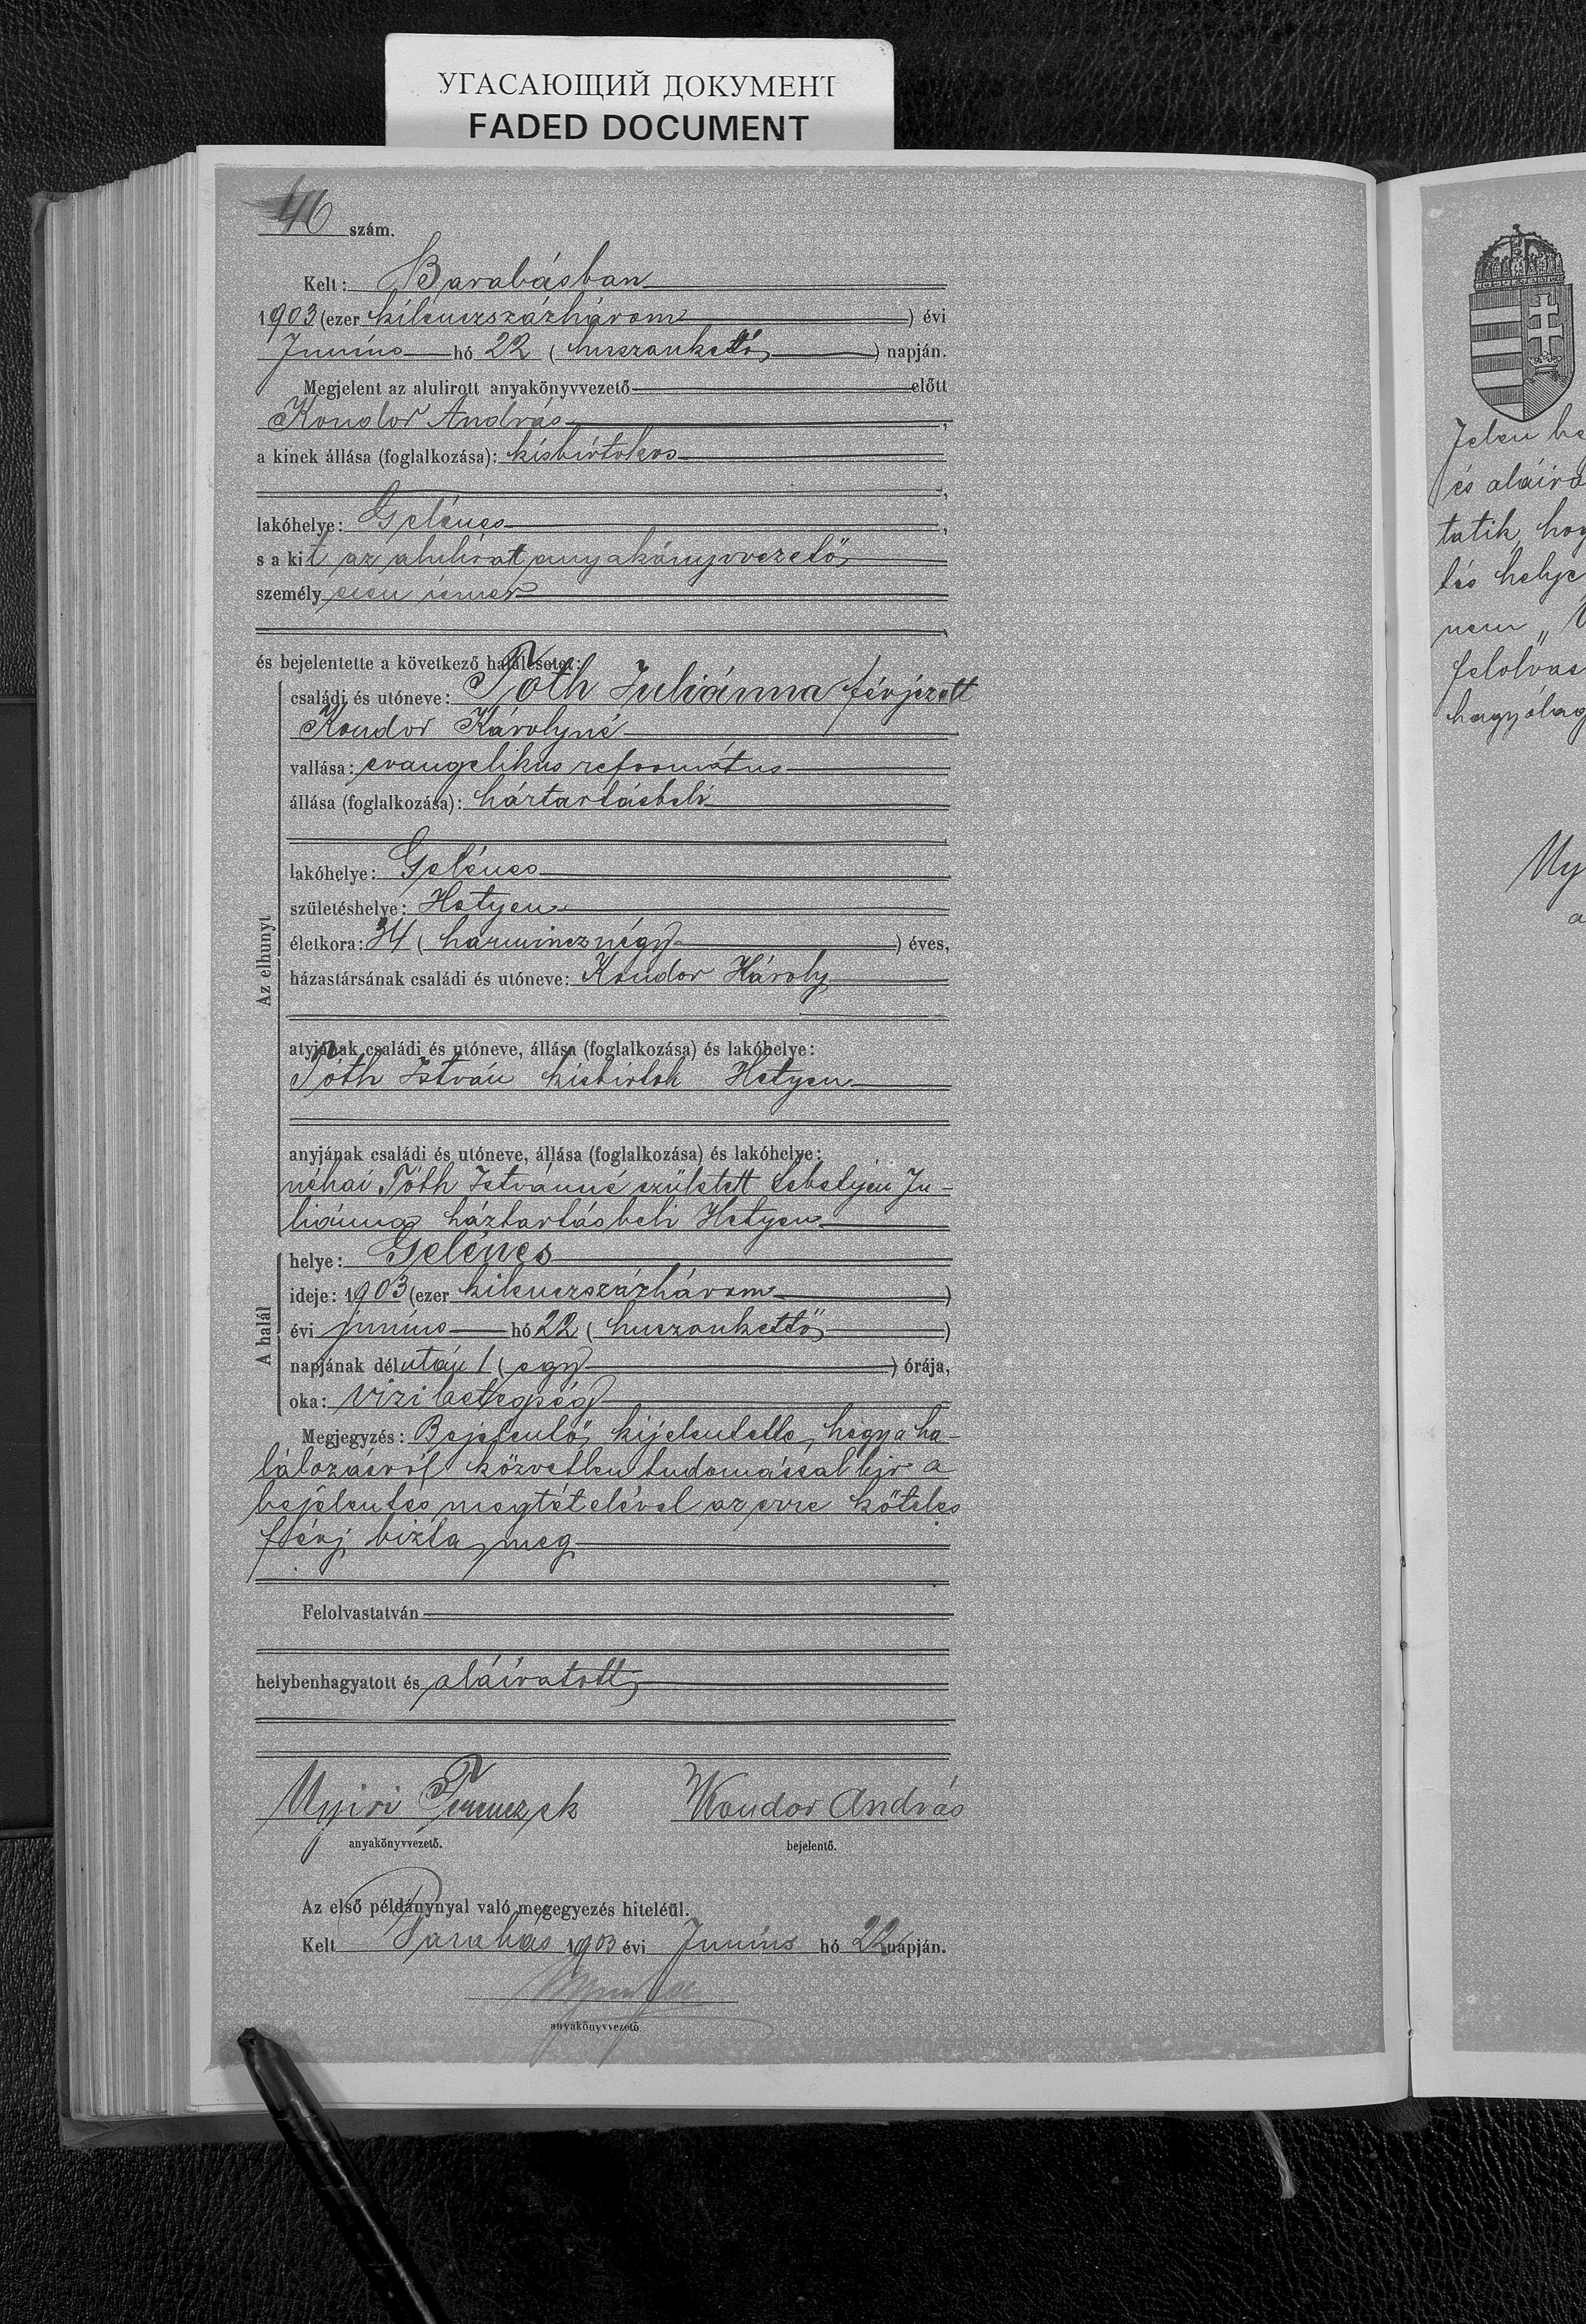 УГАСАЮЩИЙ ДОКУМЕНТ
FADED DOCUMENT
46 szám.
Kelt: Barabásban
1903 (ezer kilenczszázhárom) évi
Junius hó 22 (huszonkettő) napján.
Megjelent az alulirott anyakönyvvezető előtt
Kondor András,
a kinek állása (foglalkozása): kisbirtokos
lakóhelye: Gelénes,
s a kit az alulirott anyakönyvvezető
személyesen ismer
és bejelentette a következő halálesetet:
Az elhunyt
családi és utóneve: Tóth Juliánna férjezett
Kondor Károlyné
vallása: evangelikus református
állása (foglalkozása): háztartásbeli
lakóhelye: Gelénes
születéshelye: Hetyen
életkora: 34 (harmincznégy) éves,
házastársának családi és utóneve: Kondor Károly
atyjának családi és utóneve, állása (foglalkozása) és lakóhelye:
Tóth István kisbirtok Hetyen
anyjának családi és utóneve, állása (foglalkozása) és lakóhelye:
néhai Tóth Istvánné született Ju-
liánna háztartásbeli Hetyen
A halál
helye: Gelénes
ideje: 1903 (ezer kilenczszázhárom)
évi junius hó 22 (huszonkettő)
napjának délután 1 (egy) órája,
oka: vizi betegség
Megjegyzés: Bejelentő kijelentette, hogy a ha-
lálozásról közvetlen tudomással bir a
bejelentés megtételével az erre köteles
férj bizta meg
Felolvastatván
helybenhagyatott és aláiratott
Nyiri Ferenczek Kondor András
anyakönyvvezető. bejelentő.
Az első példánynyal való megegyezés hiteléül.
Kelt Barabás 1903 évi Junius hó 22 napján.
anyakönyvvezető.
Jelen be
és aláira
tatik, hog
tés helye
nem „
felolvas
hagyólag
Ny
a